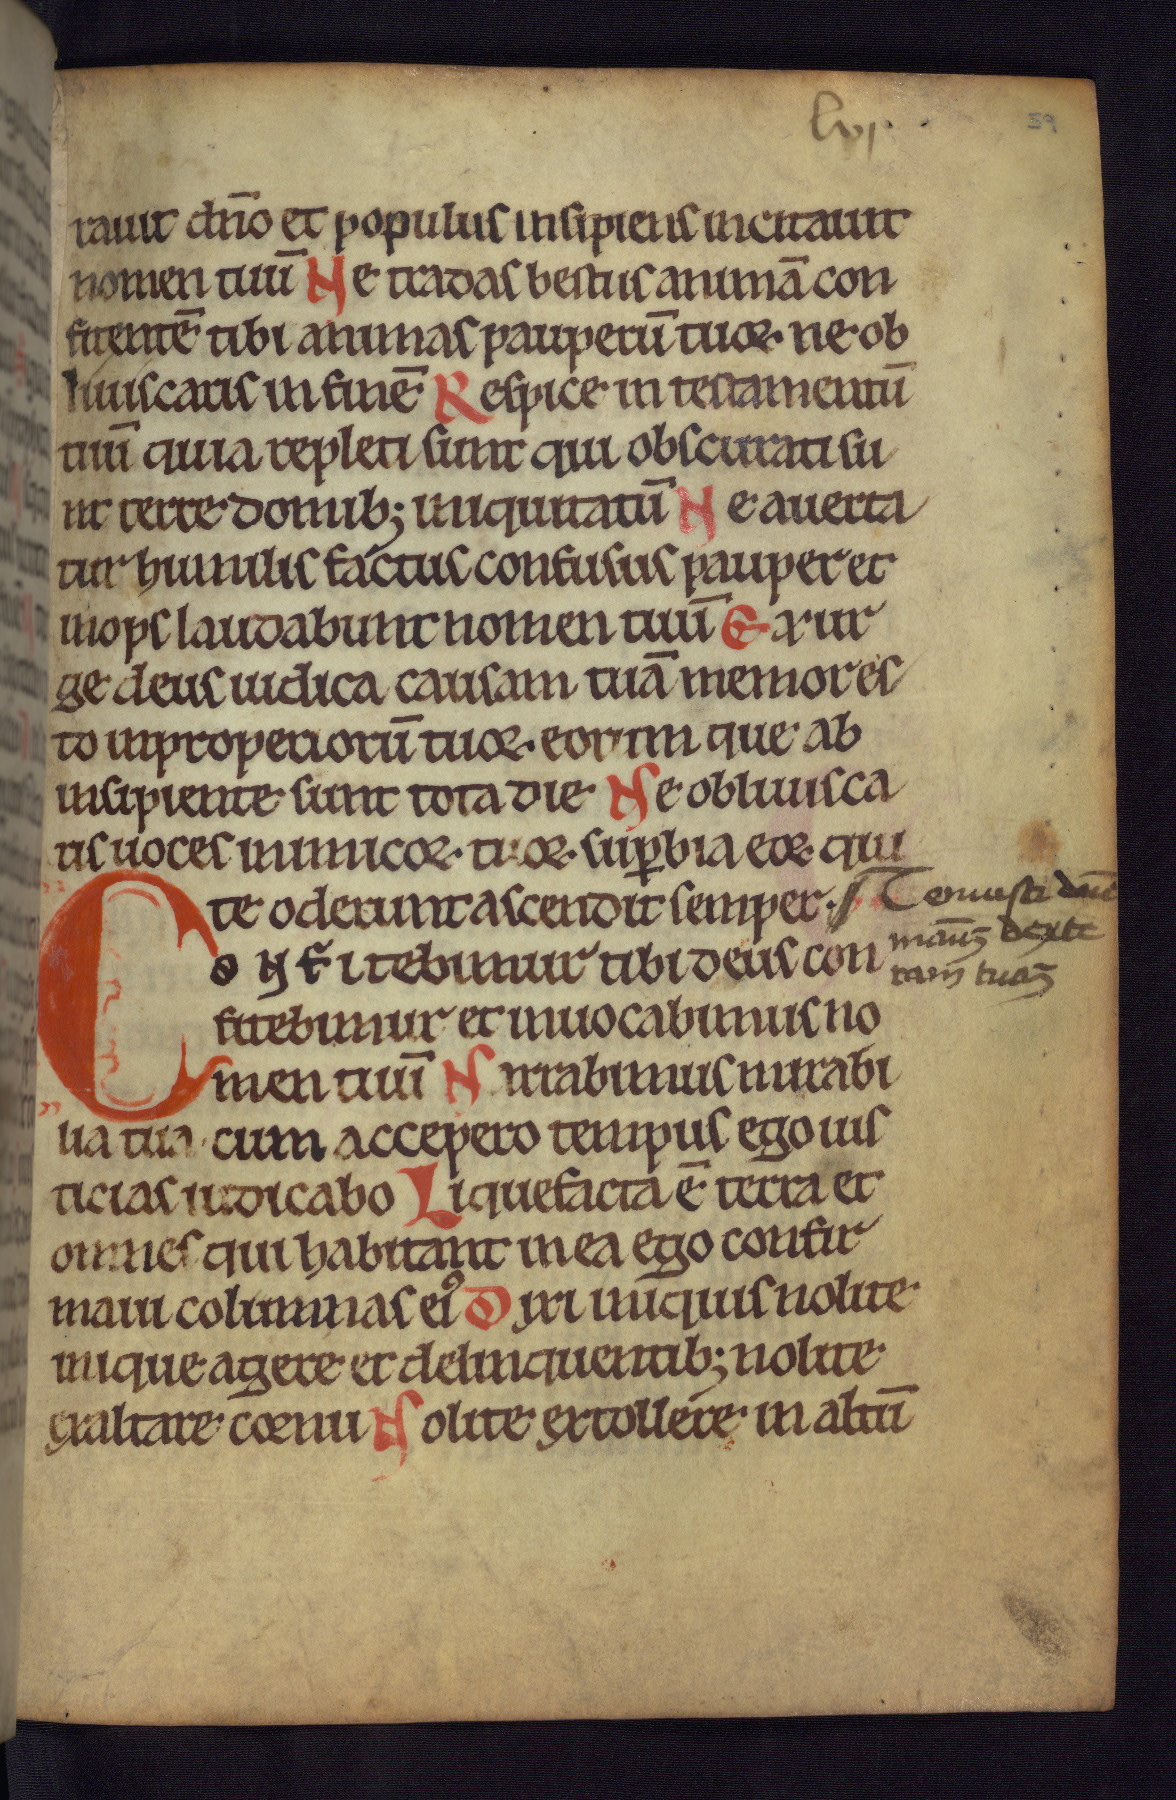 lvj.
59
rauit dn̄o et populus insipiens incitauit
nomen tuū Ne tradas bestiis animā con
fitentē tibi animas pauperū tuoꝝ ne ob
liuiscaris in finē Respice in testamentū
tuū quia repleti sunt qui obscurati su
nt terre domib; iniquitatū Ne auerta
tur humilis factus confusus pauper et
inops laudabunt nomen tuū Exur
ge deus iudica causam tuā memor es
to inproperiorū tuoꝝ. eorum que ab
insipiente sunt tota die Ne obliuisca
ris uoces inimicoꝝ. tuoꝝ. suꝑbia eoꝝ qui
te oderunt ascendit semper. Tenuisti dn̄e
manū dexte
ram tuaꝫ
Confitebimur tibi deus con
fitebimur et inuocabimus no
men tuū Narrabimus mirabi
lia tua cum accepero tempus ego ius
ticias iudicabo Liquefacta ē terra et
omnes qui habitant in ea ego confir
maui columnas eiꝰ Dixi iniquis nolite
inique agere et delinquentib; nolite
exaltare cornu Nolite extollere in altū